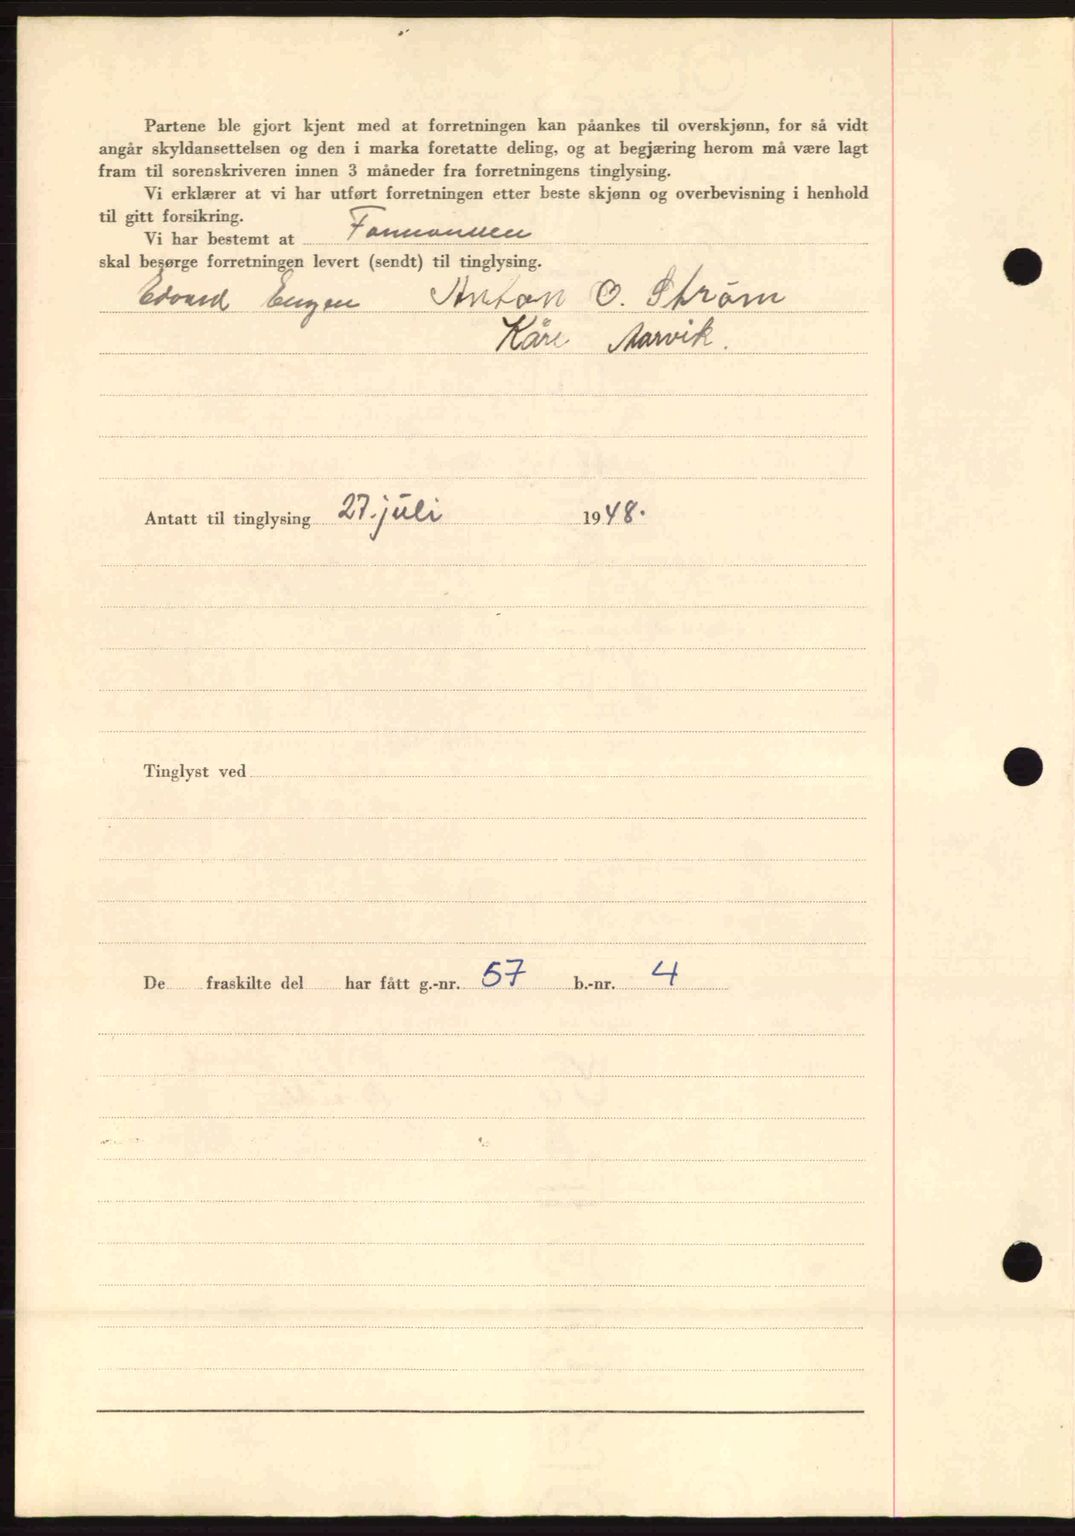 Partene ble gjort kjent med at forretningen kan påankes til overskjønn, for så vidt
angår skyldansettelsen og den i marka foretatte deling, og at begjæring herom må være lagt
fram til sorenskriveren innen 3 måneder fra forretningens tinglysing.
Vi erklærer at vi har utført forretningen etter beste skjønn og overbevisning i henhold
til gitt forsikring.
Vi har bestemt at Formannen
skal besørge forretningen levert (sendt) til tinglysing.
Edvard Engen Anton O. Strøm
Kåre Aarvik.
Antatt til tinglysing 27. juli 1948.
Tinglyst ved
De fraskilte del har fått g.-nr. 57 b.-nr. 4